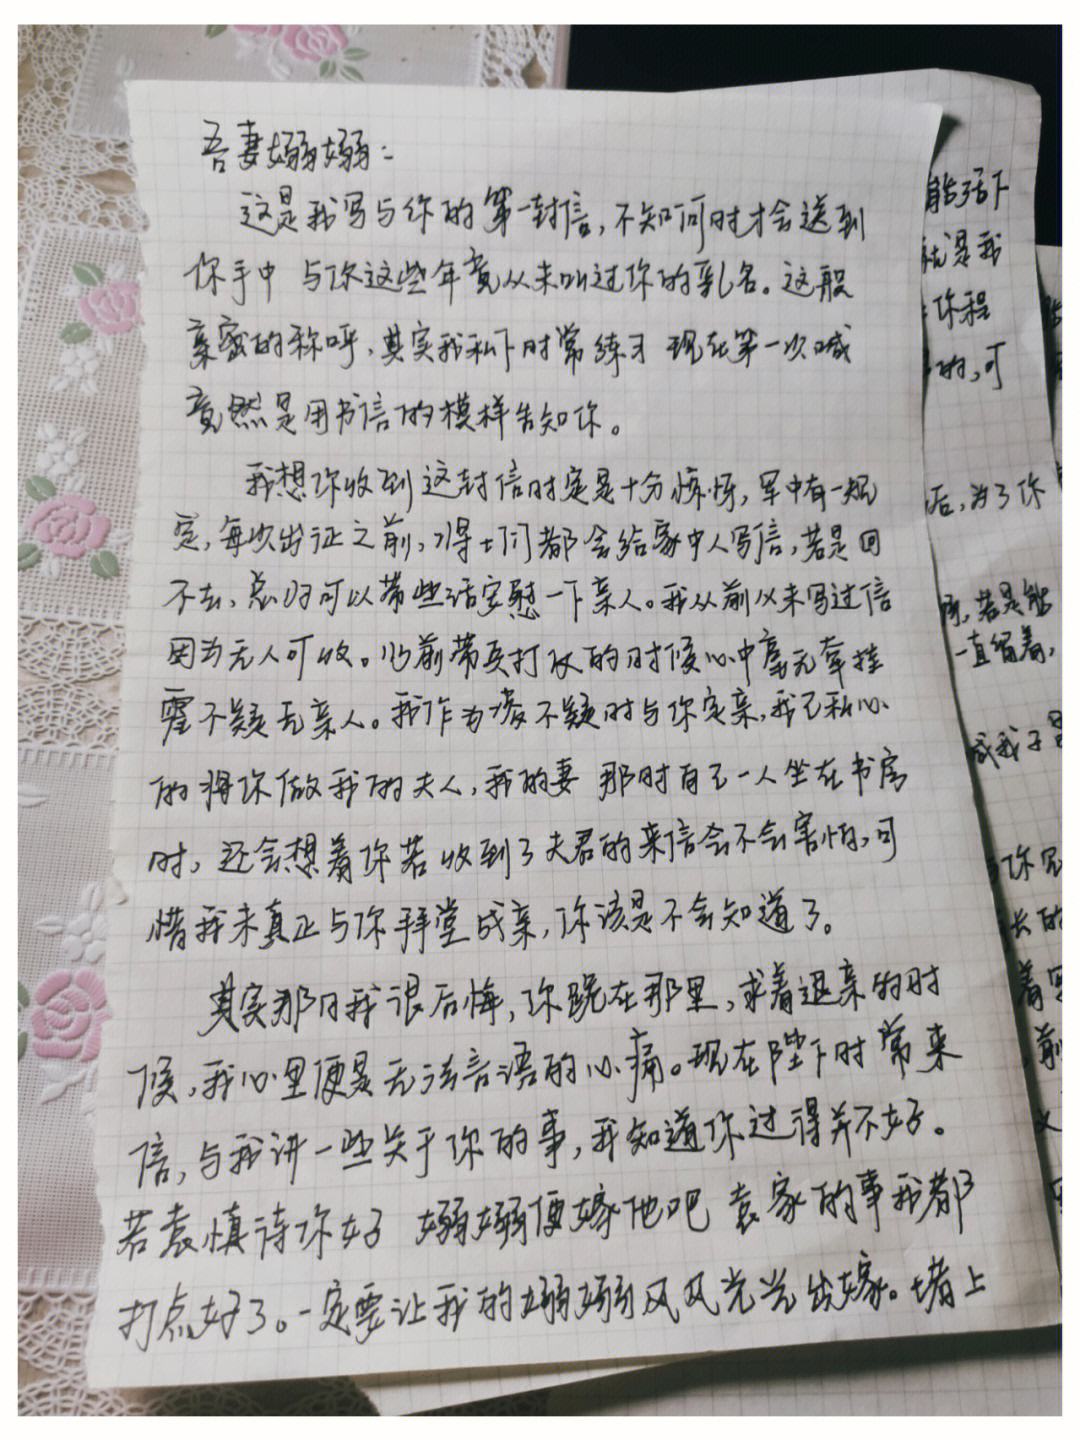 吾妻嫋嫋：
这是我写与你的第一封信，不知何时才会送到
你手中 与你这些年竟从未叫过你的乳名。这般
亲密的称呼，其实我私下时常练习 现在第一次喊
竟然是用书信的模样告知你。
我想你收到这封信时定是十分惊讶，军中有一规
定，每次出征之前，将士们都会给家中人写信，若是回
不去，总归可以带些话安慰一下亲人。我从前从未写过信
因为无人可收。从前带兵打仗的时候心中毫无牵挂
霍不疑无亲人。我作为凌不疑时与你定亲，我已私心
的将你做我的夫人，我的妻 那时自己一人坐在书房
时，还会想着你若收到了夫君的来信会不会害怕，可
惜我未真正与你拜堂成亲，你该是不会知道了。
其实那日我很后悔，你跪在那里，求着退亲的时
候，我心里便是无法言语的心痛。现在陛下时常来
信，与我讲一些关于你的事，我知道你过得并不好。
若袁慎待你好 嫋嫋便嫁他吧 袁家的事我都
打点好了。一定要让我的嫋嫋风风光光出嫁。堵上
能活下
就是我
你程
的，可
后，为了你
若是能
一直留着，
成我子
你
长的
着
前